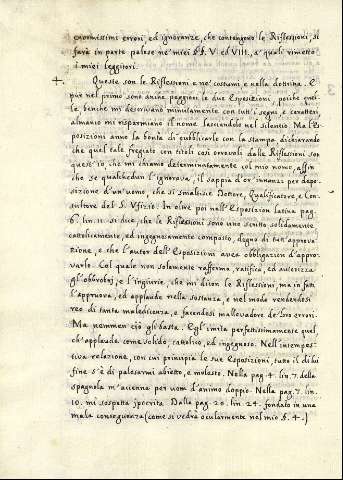 enormissimi errori, ed ignoranze, che contengono le Riflessioni, si
farà in parte palese ne' miei §§. V. ed VIII., a' quali rimetto
i miei leggitori.
+. Queste son le Riflessioni e ne' costumi e nella dottrina. E
pur nel primo sono anche peggiori le due Esposizioni, poichè quel-
le, benchè mi descrivano minutamente con tutt' i segni, e caratteri
almanco mi risparmiano il nome lasciandolo nel silentio. Ma l'Es-
posizioni anno la bontà di pubblicarlo con la stampa dichiarando
che quel tale fregiato con titoli così orrevoli dalle Riflessioni son
quest' io, che mi chiamo determinatamente col mio nome, affin-
che se qualchedun l'ignorava, il sappia d'or innanzi per depo-
sizione d'un uomo, che si smaltisce Dottore, Qualificatore, e Con-
sultore del S. Ufizio. In oltre poi nell' Esposizion latina pag.
6. lin. 11. si dice, che le Riflessioni sono uno scritto solidamente
cattolicamente, ed ingegnosamente composto, degno di tutt' approva-
zione, e che l'autor dell' Esposizioni avea obbligazion d'appro-
varlo. Col quale non solamente rafferma, ratifica, ed autorizza
gl' obbrobrj, e l'ingiurie, che mi dicon le Riflessioni, ma in fatti
l'appruova, ed applaude nella sostanza, e nel modo rendendosi
reo di tanta maledicenza, e facendosi mallevadore de' loro errori.
Ma nemmen ciò gli basta. Egl' imita perfettissimamente quel,
ch' applaude come solido, catolico, ed ingegnoso. Nell' intempes-
tiva relazione, con cui principia le sue Esposizioni, tutto il di lui
fine s'è di palesarmi abietto, e molesto. Nella pag. 4. lin. 7. della
spagnola m' accenna per uom d'animo doppio. Nella pag. 7. lin.
10. mi sospetta ipocrita. Dalla pag. 20. lin. 24. fondato in una
mala conseguenza (come si vedrà ocularmente nel mio §. 4.)